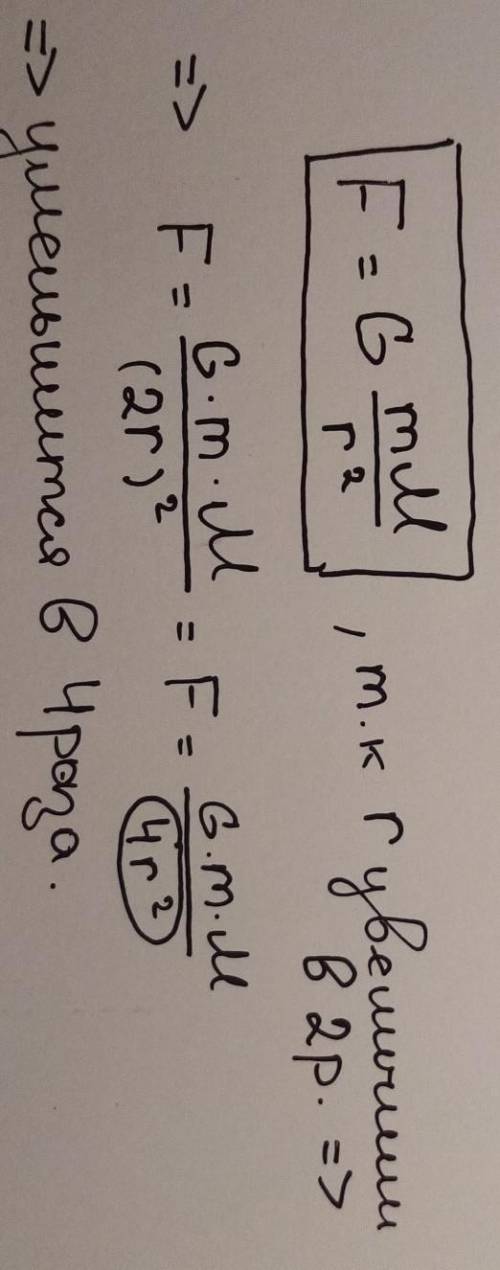 F = G mM/r² , т.к r увеличили
в 2р. =>
=> F = G·m·M/(2r)² = F = G·m·M/4r²
=> уменьшится в 4 раза.